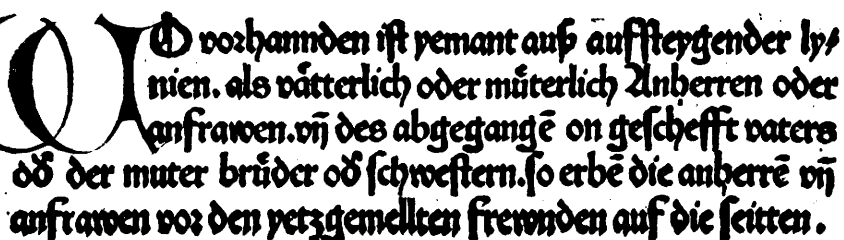 WO vorhannden ist yemant auß auffsteygender ly/
nien. als vätterlich oder müterlich Anherren oder
anfrawen. vn̄ des abgegangē on geschefft vaters
od̄ der muter brüder od̄ schwestern. so erbē die anherrē vn̄
anfrawen vor den yetzgemellten frewnden auf die seitten.